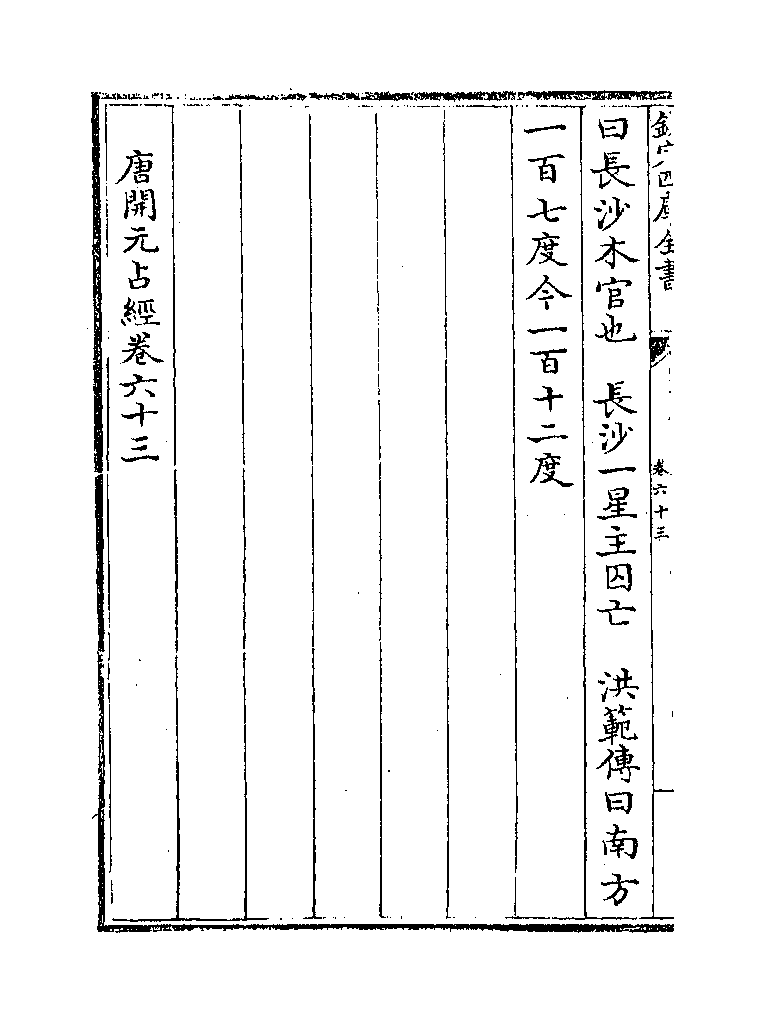 欽定四庫全書
卷六十三
曰長沙木官也　長沙一星主囚亡　洪範傳曰南方
一百七度今一百十二度
唐開元占經卷六十三